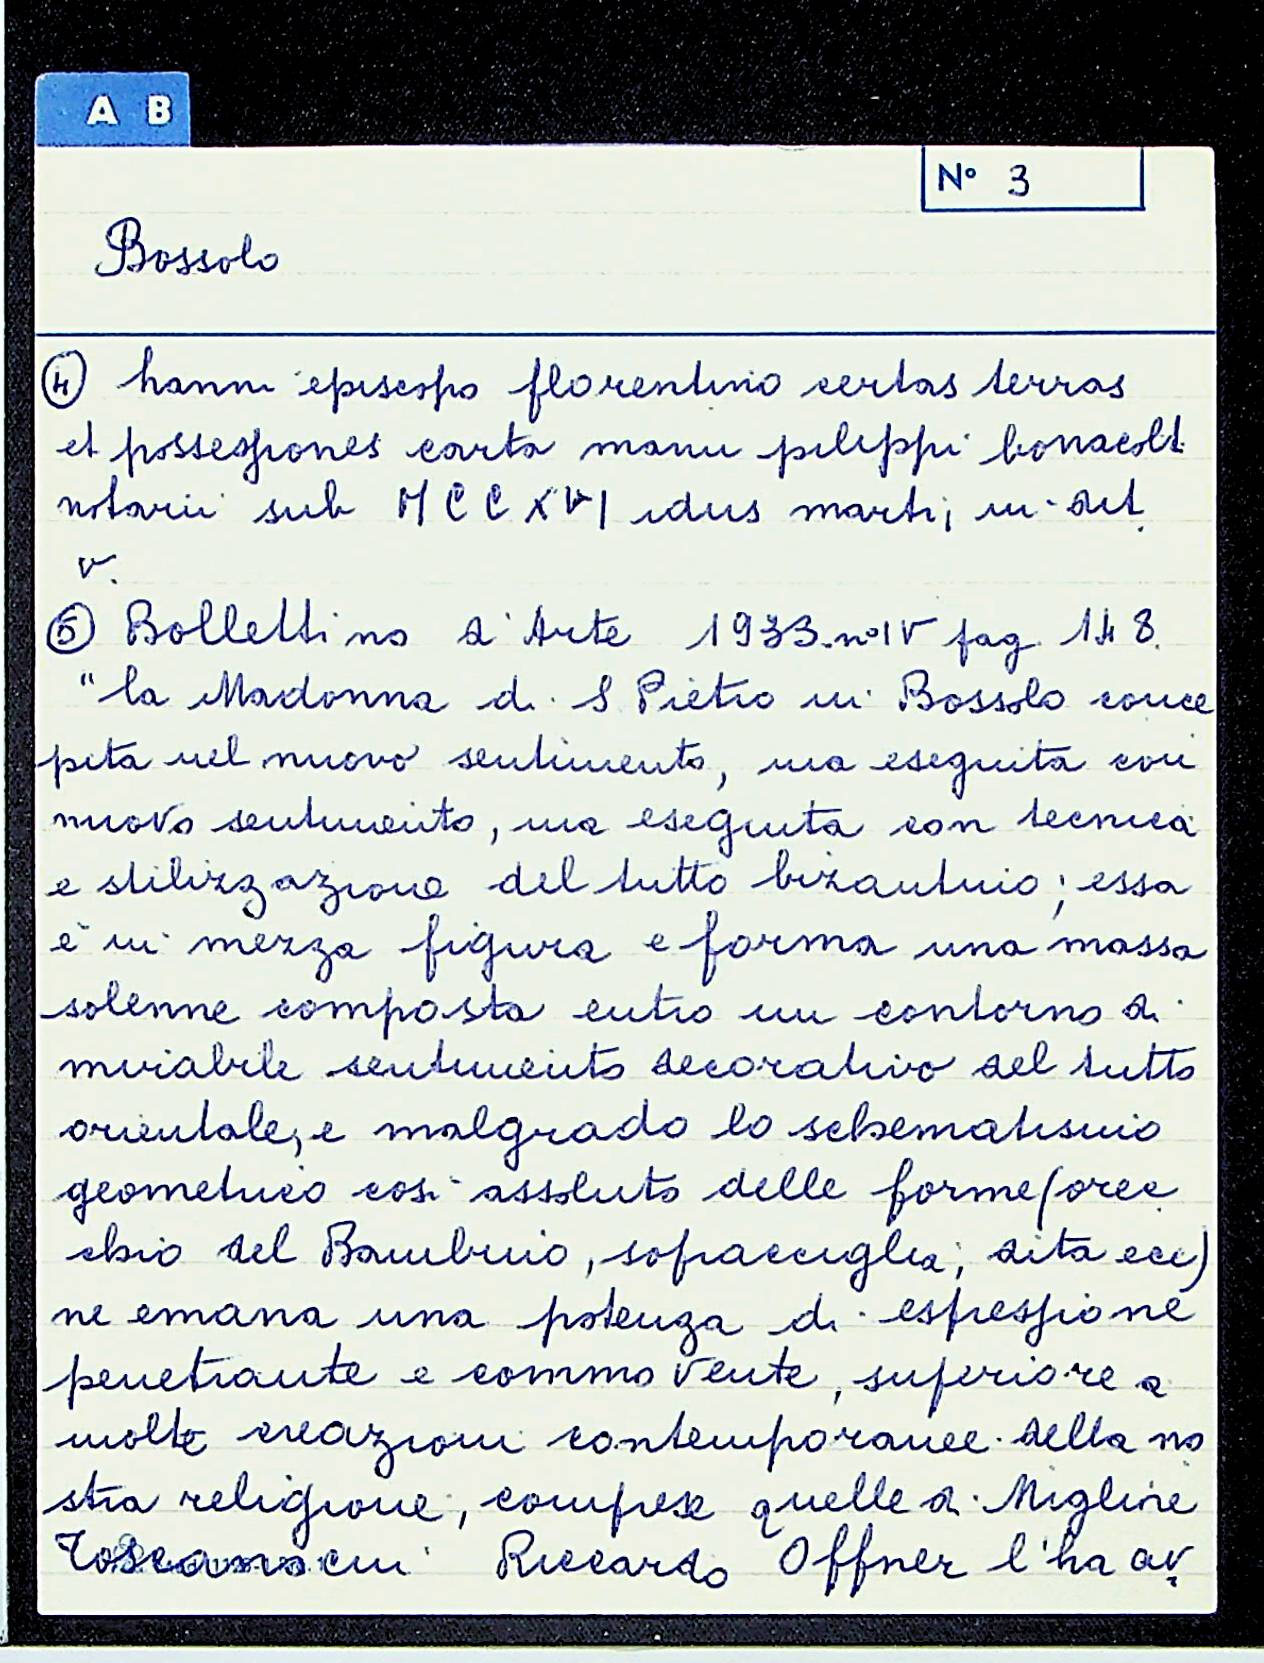 A B
N° 3
Bossolo
④ hanni episcopo florentino certas terras
et possessiones carta manu pileppi bonacolt
notarii sub MCCXVI idus marti; in. det.
v.
⑤ Bollettino d'Arte 1933. n° IV pag. 148.
"la Madonna di S Pietro in Bossolo conce
pita nel nuovo sentimento, ma eseguita con
nuovo sentimento, ma eseguita con tecnica
e stilizzazione del tutto bizantino; essa
è in mezza figura e forma una massa
solenne composta entro un contorno di
mirabile sentimento decorativo del tutto
orientale, e malgrado lo schematismo
geometrico così assoluto delle forme (orec
chio del Bambino, sopracciglia; dita ecc)
ne emana una potenza di espressione
penetrante e commovente, superiore a
molte creazioni contemporanee della no
stra religione, comprese quelle di Migline
cui Riccardo Offner l'ha av